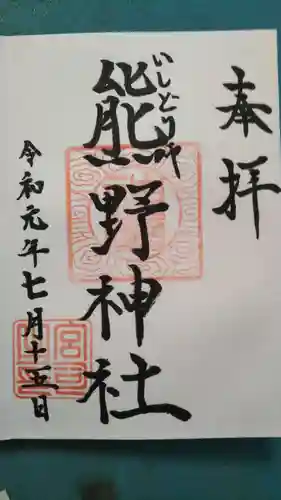 奉拝
いしどり叶
熊野神社
令和元年七月十五日